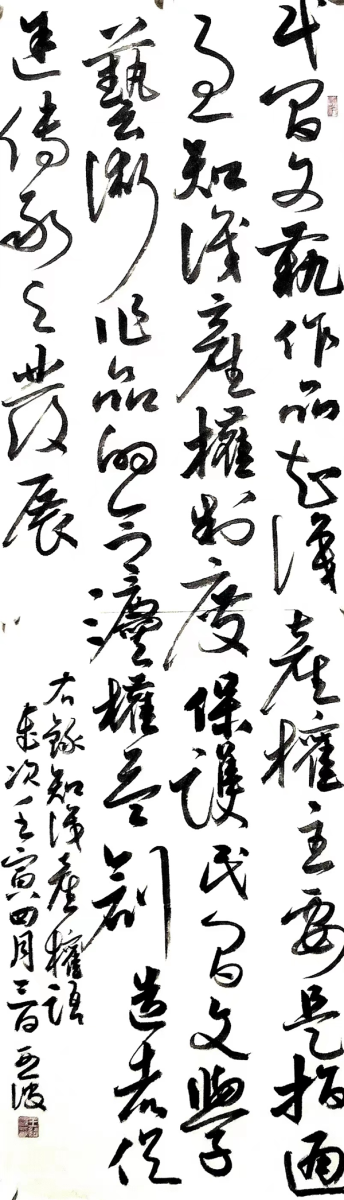 民間文藝作品知識產權主要是指通
過知識產權制度保護民間文學
藝術作品的合灋權益創造者促
進傳承与發展
右錄知識產權語
歲次壬寅四月三日亞波